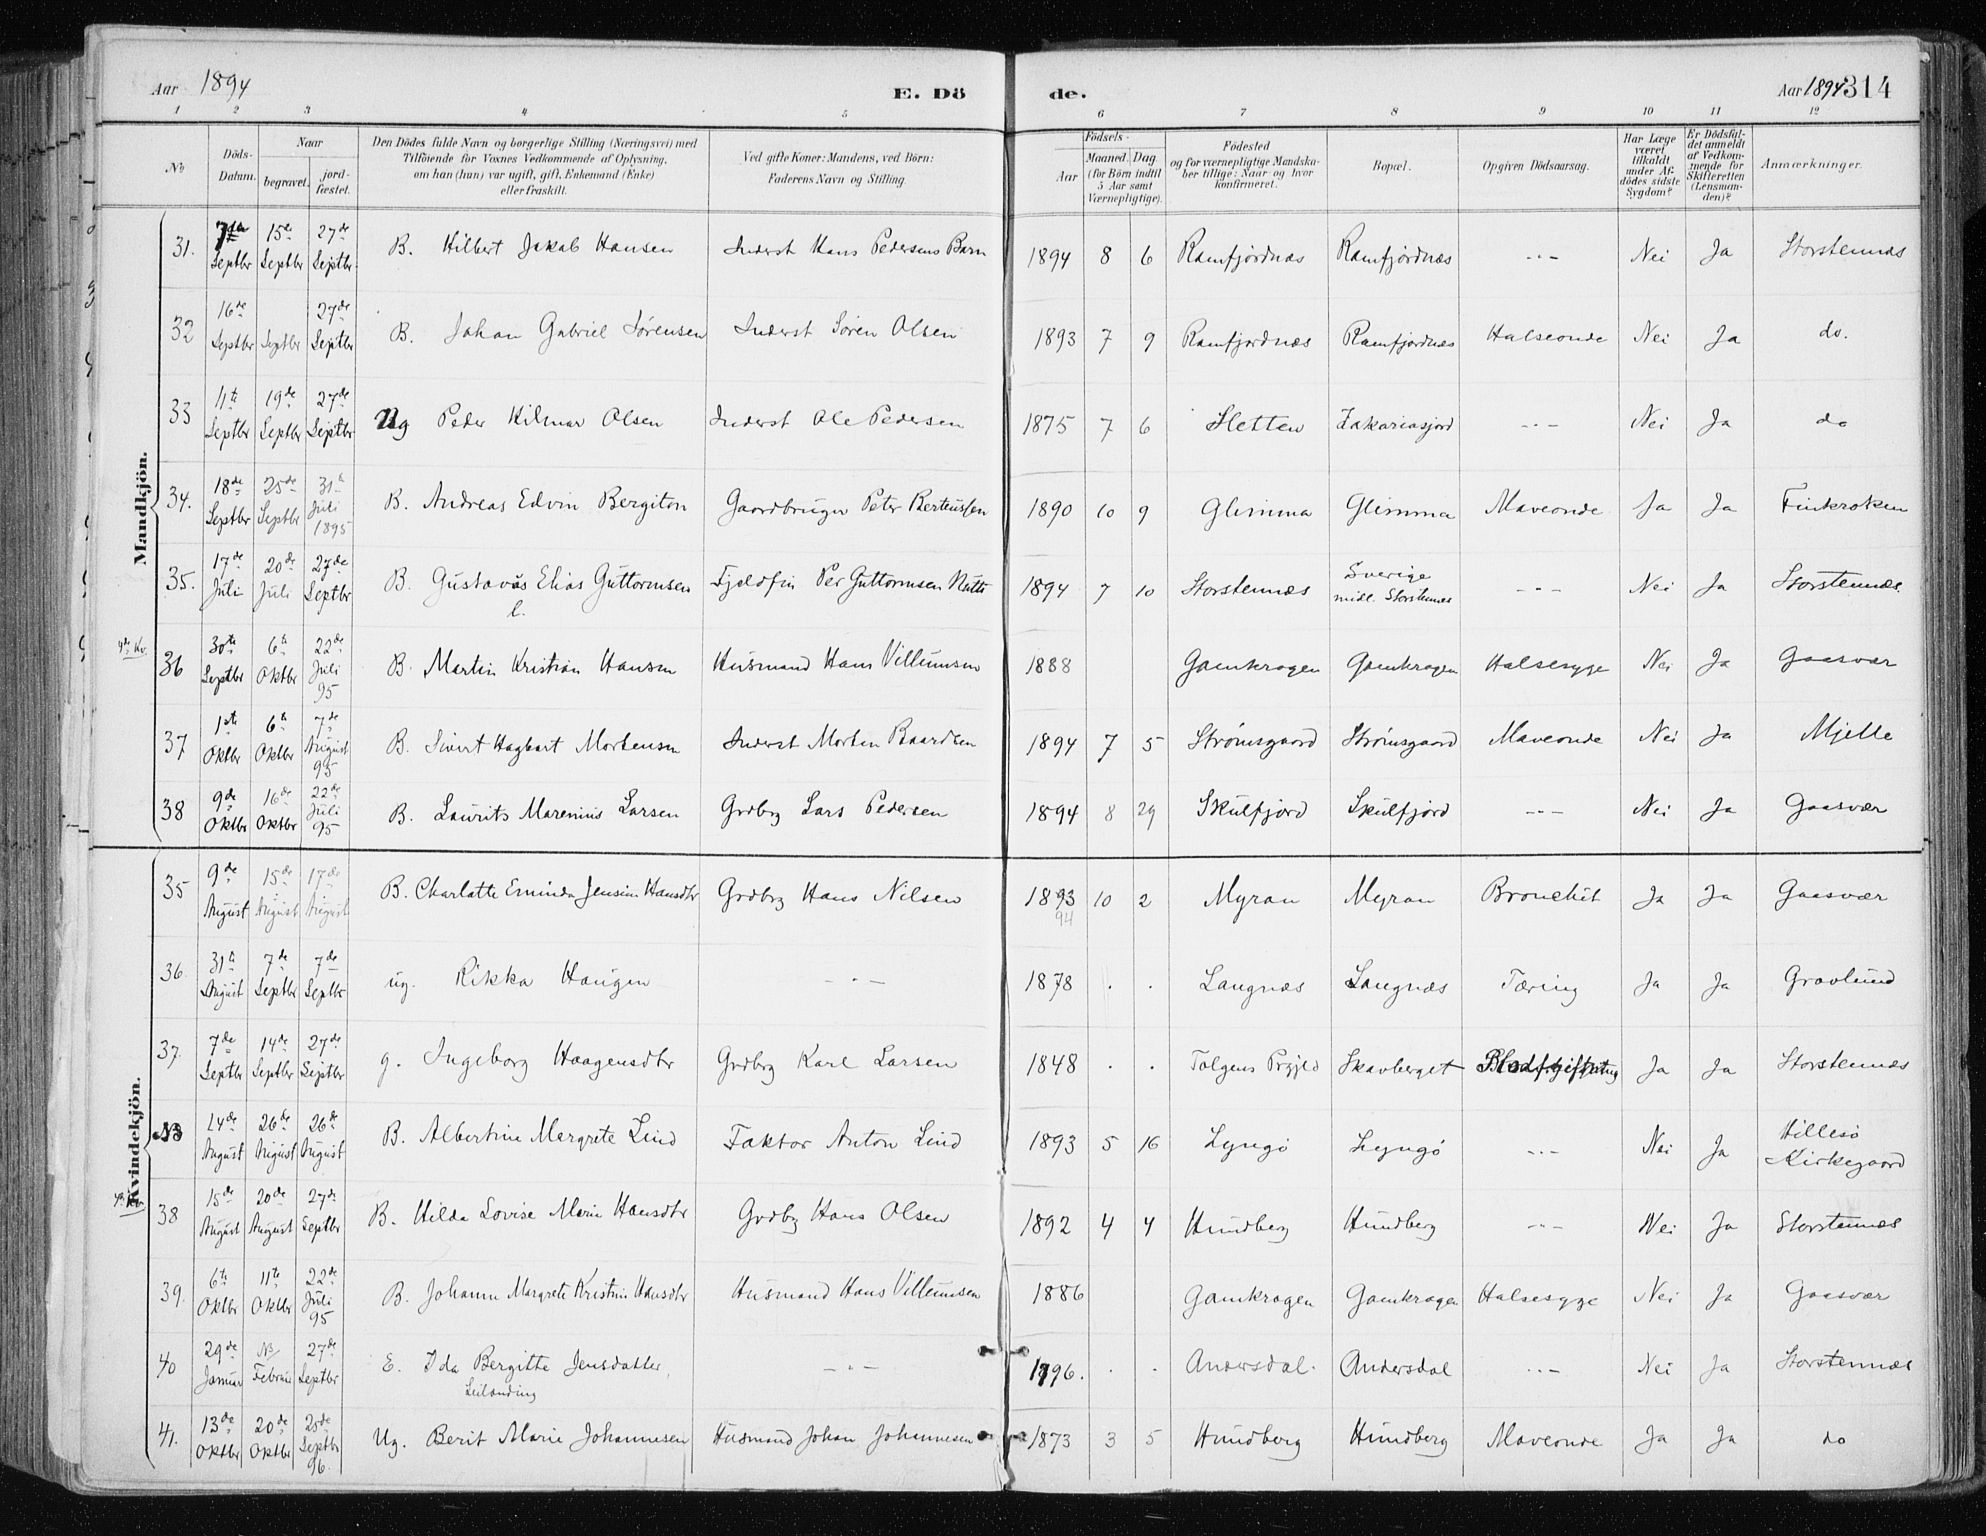 Aar 1894 E. Dö de. Aar 1894 314
1 2 3 4 5 6 7 8 9 10 11 12
No Döds-Datum. Naar begravet. jordfæstet. Den Dödes fulde Navn og borgerlige Stilling (Næringsvei) med Tilföiende for Voxnes Vedkommende af Oplysning, om han (hun) var ugift, gift, Enkemand (Enke) eller fraskilt. Ved gifte Koner: Mandens, ved Börn: Faderens Navn og Stilling. Födsels- Aar Maaned. Dag. (for Börn indtil 5 Aar samt Værnepligtige). Födested og for værnepligtige Mandskaber tillige: Naar og hvor konfirmeret. Bopæl. Opgiven Dödsaarsag. Har Læge været tilkaldt under Afdödes sidste Sygdom? Er Dödsfaldet anmeldt af Vedkommende for Skifteretten (Lensmanden)? Anmærkninger.
Mandkjön.
31. 7de Septbr 15de Septbr 27de Septbr B. Hilbert Jakob Hansen Inderst Hans Pedersens Barn 1894 8 6 Ramfjordnæs Ramfjordnæs -"- Nei Ja Storstennæs
32 16de Septbr Septbr 27de Septbr B. Johan Gabriel Sørensen Inderst Søren Olsen 1893 7 9 Ramfjordnæs Ramfjordnæs Halseonde Nei Ja do.
33 11te Septbr 19de Septbr 27de Septbr Ug Peder Hilmar Olsen Inderst Ole Pedersen 1875 7 6 Sletten Zakariasjord -"- Nei Ja do
34. 18de Septbr 25de Septbr 31te Juli 1895 B. Andreas Edvin Bergiton Gaardbruger Peter Berteussen 1890 10 9 Glimma Glimma Maveonde Ja Ja Finkroken
35. 17de Juli 20de Juli 27de Septbr B. Gustavus Elias Guttormsen Fjeldfin Per Guttormsen Nutti 1894 7 10 Storstennæs Sverige midl. Storstennæs -"- Nei Ja Storstennæs.
36 30te Septbr 6te Oktbr 22de Juli 95 B. Martin Kristian Hansen Husmand Hans Villumsen 1888 Gamkrogen Gamkrogen Halsesyge Nei Ja Gaasvær
37 1ste Oktbr 6te Oktbr 7de August 95 B. Sivert Hagbart Mortensen Inderst Morten Baardsen 1894 7 5 Strømsgaard Strømsgaard Maveonde Nei Ja Mjelle
38 9de Oktbr 16de Oktbr 22de Juli 95 B. Laurits Marenius Larsen Grdbg Lars Pedersen 1894 8 29 Skulfjord Skulfjord -"- Nei Ja Gaasvær
Kvindekjön.
35 9de August 15de August 17de August B. Charlotte Eminda Jensine Hansdtr Grdbrg Hans Nilsen 1893 94 10 2 Myran Myran Bronchit Ja Ja Gaasvær
36. 31te August 7de Septbr 7de Septbr ug. Rikka Haugen -"- 1878 . . Langnæs Langnæs Tæring Ja Ja Gravlund
37. 7de Septbr 14de Septbr 27de Septbr g. Ingeborg Haagensdtr Grdbrg Karl Larsen 1848 . . Tolgens Prgjld Skavberget Blodforgiftning Ja Ja Storstennæs
14de August 26de August 26de August B. Albertine Margrete Lind Faktor Anton Lind 1893 5 16 Lyngö Lyngö -"- Nei Ja Hillesö Kirkegaard
38 15de August 20de August 27de Septbr B. Hilda Lovise Marie Hansdtr Grdbg Hans Olsen 1892 4 4 Hundberg Hundberg -"- Nei Ja Storstennæs
39. 6te Oktbr 11te Oktbr 22de Juli 95 B. Johanne Margrete Kristine Hansdtr Husmand Hans Villumsen 1886 Gamkrogen Gamkrogen Halsesyge Nei Ja Gaasvær
40 29de Januar Februar 27de Septbr E. Ida Bergitte Jensdatter, Leilending -"- 1796. . . Andersdal. Andersdal -"- Nei Ja Storstennæs
41. 13de Oktbr 20de Oktbr 25de Septbr 96. Ug. Berit Marie Johannesen Husmand Johan Johannesen 1873 3 5 Hundberg Hundberg Maveonde Ja Ja do